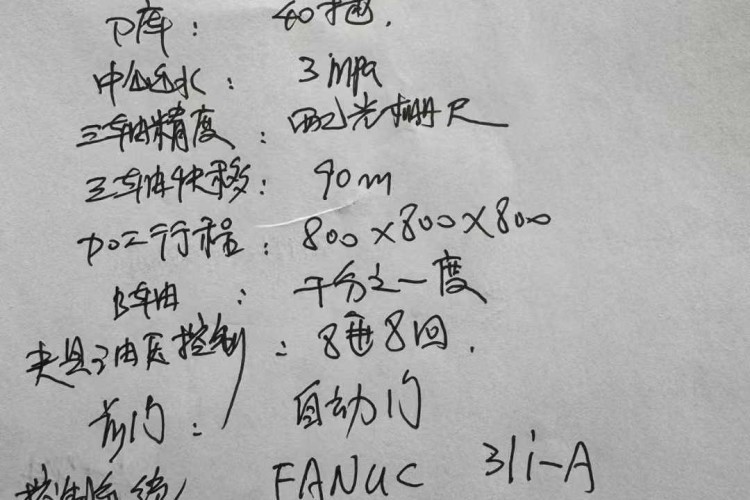 刀库：40把.
中心出水：3mpa
三轴精度：配光栅尺
三轴快移：90m
加工行程：800×800×800
B轴：千分之一度
夹具油压控制：8进8回.
前门：自动门
控制系统 FANUC 31i-A